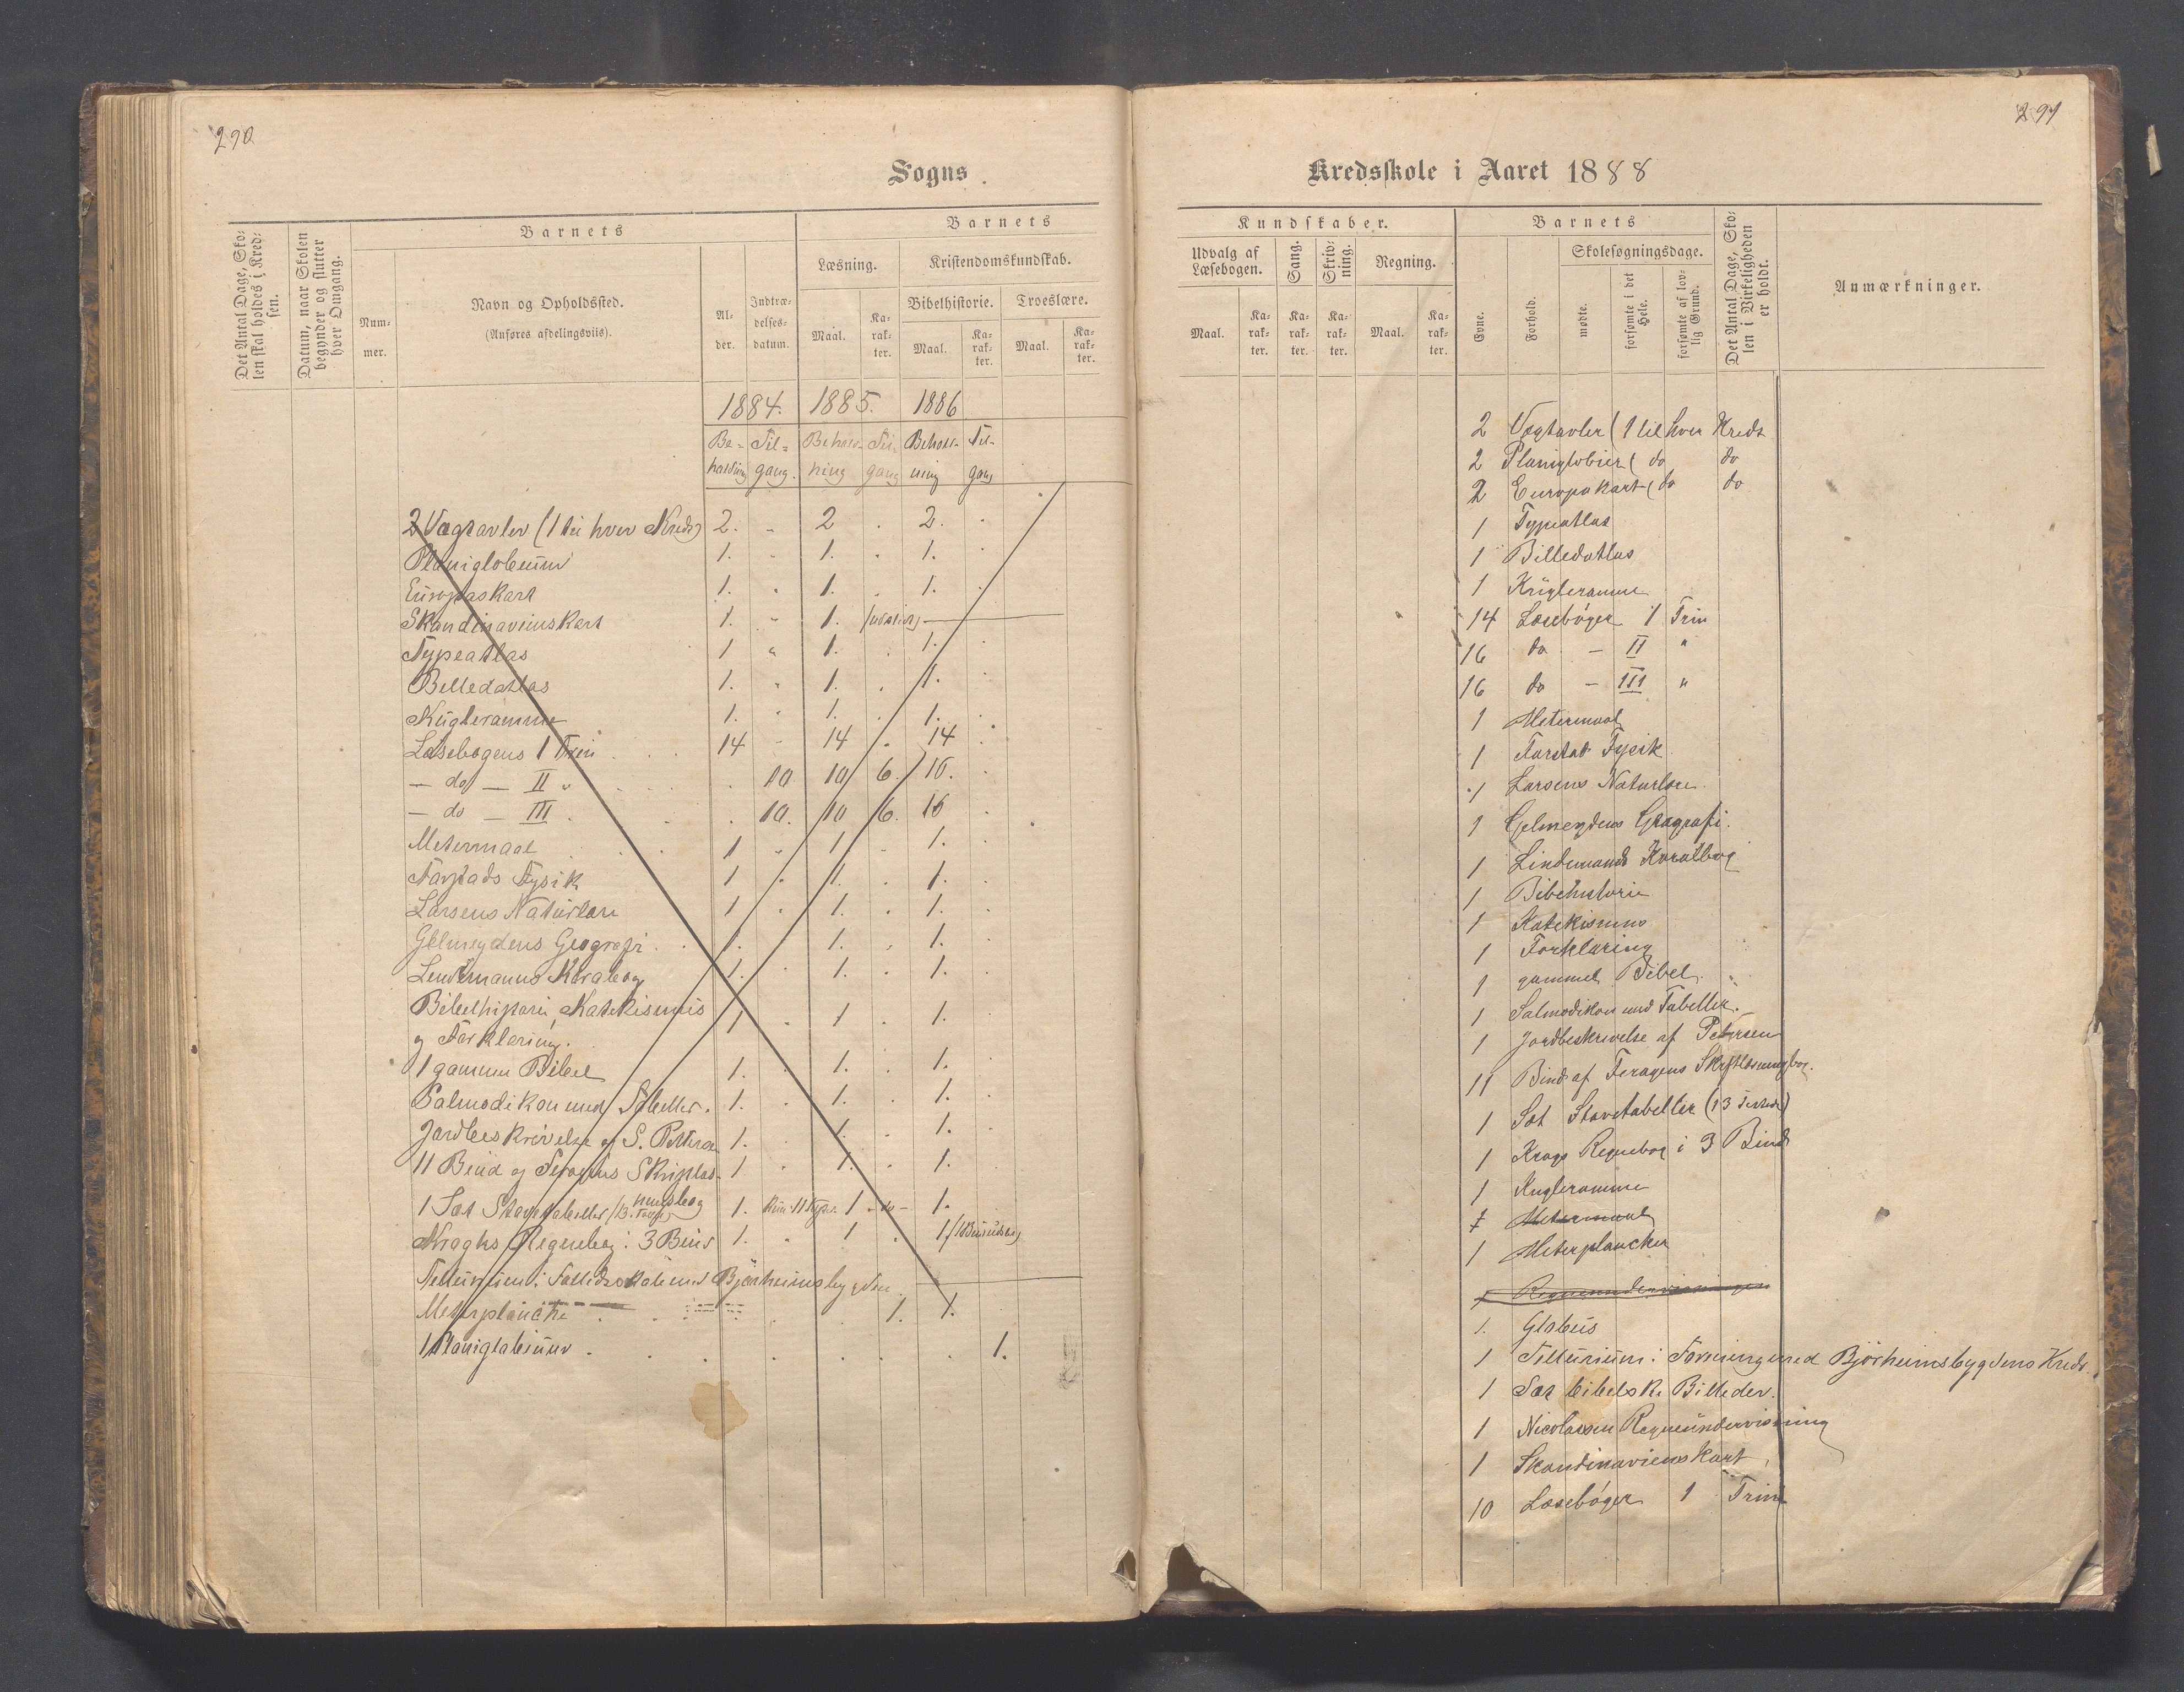 290
Sogns
Det Antal Dage, Skolen skal holdes i Kredsen.
Datum, naar Skolen begynder og slutter hver Omgang.
Barnets
Barnets
Nummer.
Navn og Opholdssted.
(Anføres afdelingsviis).
Alder.
Indtrædelsesdatum.
Læsning.
Kristendomskundskab.
Bibelhistorie.
Troeslære.
Maal. Karakter. Maal. Karakter. Maal. Karakter.
1884. 1885. 1886
Be- Til- Behold- Til- Behold- Til-
holdning gang. ning gang ning gang
2 Vægtavler (1 til hver Kreds) 2. - 2 . 2. .
Planiglobium 1. - 1. . 1. .
Europaskart 1. . 1. . 1.
Skandinaviens Kart 1. - 1.
Typeatlas 1 " 1. . 1. .
Billedatlas 1. . 1. . 1. .
Kugleramme 1. . 1. . 1. .
Læsebogens 1 Trin 14 - 14 . 14 .
— do — II " . 10 10 6. 16. .
— do — III . . 10. 10 6. 16 .
Metermaal 1 . 1 - 1. .
Farstads Fysik 1 . 1. . 1. .
Larsens Naturlære 1 . 1. . 1. .
Gjelmeydens Geografi 1. 1. . 1. .
Lindemanns Koralbog 1. . 1. . 1. .
Bibelhistorie, Katekismus 1 . 1 . 1. .
og Forklaring.
1 gammel Bibel 1. . 1. . 1. .
Salmodikon med Tabeller. 1. . 1. . 1. .
Jordbeskrivelse af S. Petersen 1. . 1. 1. .
11 Bind af Feragens Skriftlæs- 1 . 1. . 1.
ningsbog
1 Sæt Stavetabeller (13 1. 1 - do - 1.
Kraghs Regnebog i 3 Bind 1. . 1 . 1
Tellurium i Fællidsskab med Bjørheimsbygden
Meterplanche 1. 1.
1 Planiglobium . . . . . . 1.
291
Kredsskole i Aaret 1888
Kundskaber.
Barnets
Udvalg af Læsebogen.
Sang.
Skrivning.
Regning.
Maal. Karakter. Karakter. Karakter. Maal. Karakter.
Evne.
Forhold.
Skolesøgningsdage.
mødte.
forsømte i det Hele.
forsømte af lovlig Grund.
Det Antal Dage, Skolen i Virkeligheden er holdt.
Anmærkninger.
2 Vægtavler (1 til hver Kreds
2 Planiglobier ( do do
2 Europakart ( do do
1 Typeatlas
1 Billedatlas
1 Kugleramme
14 Læsebøger 1 Trin
16 do - II "
16 do - III "
1 Metermaal
1 Farstads Fysik
1 Larsens Naturlære
1 Gjelmeydens Geografi.
1 Lindemands Koralbog
1 Bibelhistorie
1 Katekismus
1 Forklaring
1 gammel Bibel.
1 Salmodikon med Tabeller.
1 Jordbeskrivelse af Petersen
11 Bind af Feragens Skriftlæsningsbog.
1 Sæt Stavetabeller
1 Krags Regnebog i 3 Bind
1 Kugleramme
1 Metermaal
1 Meterplancher
1 Regneundervisningen
1. Globus
1 Tellurium i Forening med Bjørheimsbygdens Kreds.
1 Sæt bibelske Billeder.
1 Nicolaisen Regneundervisning
1 Skandinaviens Kart
10 Læsebøger 1 Trin